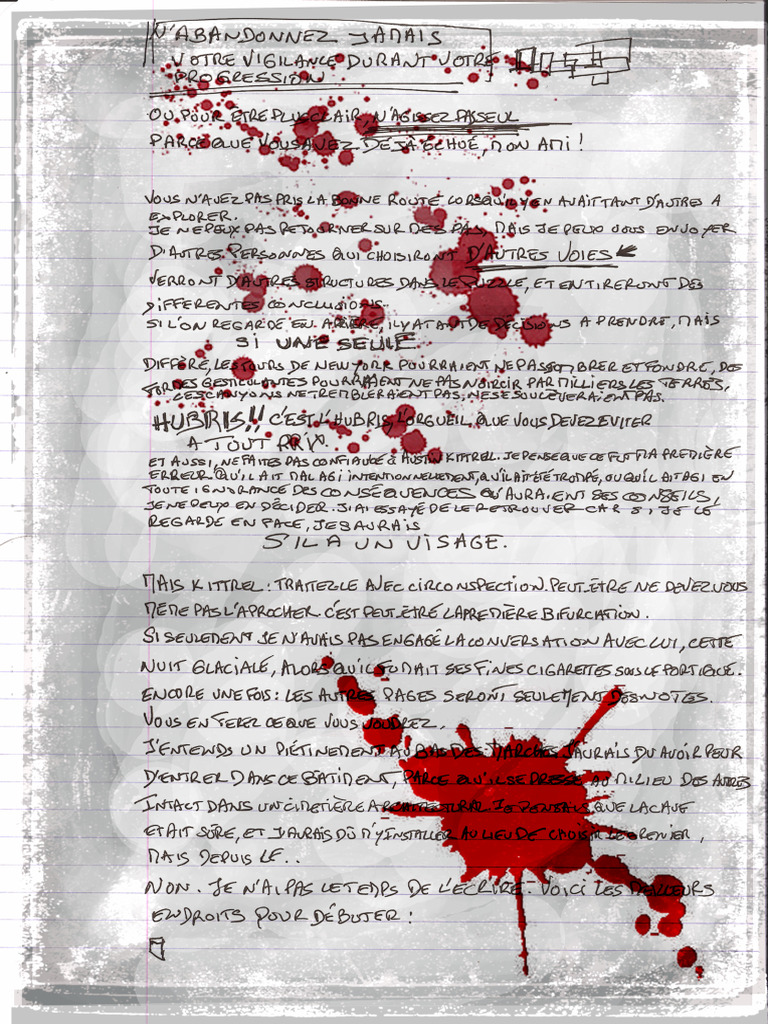 N'ABANDONNEZ JAMAIS
VOTRE VIGILANCE DURANT VOTRE
PROGRESSION
OU POUR ÊTRE PLUS CLAIR, N'AGISSEZ PAS SEUL
PARCE QUE VOUS AVEZ DÉJÀ ÉCHOUÉ, MON AMI !
VOUS N'AVEZ PAS PRIS LA BONNE ROUTE LORSQU'IL Y EN AVAIT TANT D'AUTRES A
EXPLORER.
JE NE PEUX PAS RETOURNER SUR MES PAS, MAIS JE PEUX VOUS ENVOYER
D'AUTRES PERSONNES QUI CHOISIRONT D'AUTRES VOIES
VERRONT D'AUTRES STRUCTURES DANS LE PUZZLE, ET EN TIRERONT DES
DIFFERENTES CONCLUSIONS.
SI L'ON REGARDE EN ARIÈRE, IL Y A TANT DE DÉCISIONS A PRENDRE, MAIS
SI UNE SEULE
DIFFÈRE, LES TOURS DE NEW YORK POURRAIENT NE PAS SOMBRER ET FONDRE, DES
FORMES GESTICULANTES POURRAIENT NE PAS NOIRCIR PAR MILLIERS LES TERRES,
LES CANYONS NE TREMBLERAIENT PAS, NE SE SOULEVERAIENT PAS.
HUBRIS!! C'EST L'HUBRIS, L'ORGUEIL, QUE VOUS DEVEZ EVITER
A TOUT PRIX.
ET AUSSI, NE FAITES PAS CONFIANCE À AUSTIN KITTREL. JE PENSE QUE CE FUT MA PREMIÈRE
ERREUR. QU'IL AIT MAL AGI INTENTIONNELLEMENT, QU'IL AIT ÉTÉ TROMPÉ, OU QU'IL AIT AGI EN
TOUTE IGNORANCE DES CONSÉQUENCES QU'AURAIENT SES CONSEILS,
JE NE PEUX EN DÉCIDER. J'AI ESSAYÉ DE LE RETROUVER CAR SI JE LE
REGARDE EN FACE, JE SAURAIS
S'IL A UN VISAGE.
MAIS KITTREL : TRAITEZ LE AVEC CIRCONSPECTION. PEUT-ÊTRE NE DEVEZ VOUS
MÊME PAS L'APROCHER. C'EST PEUT-ÊTRE LA PREMIÈRE BIFURCATION.
SI SEULEMENT JE N'AVAIS PAS ENGAGÉ LA CONVERSATION AVEC LUI, CETTE
NUIT GLACIALE, ALORS QU'IL FUMAIT SES FINES CIGARETTES SOUS LE PORTIQUE.
ENCORE UNE FOIS : LES AUTRES PAGES SERONT SEULEMENT DES NOTES.
VOUS EN FEREZ CE QUE VOUS VOUDREZ.
J'ENTENDS UN PIÉTINEMENT AU BAS DES MARCHES. J'AURAIS DU AVOIR PEUR
D'ENTRER DANS CE BÂTIMENT, PARCE QU'IL SE DRESSE AU MILIEU DES AUTRES
INTACT DANS UN CIMETIÈRE ARCHITECTURAL. JE PENSAIS QUE LA CAVE
ETAIT SÛRE, ET J'AURAIS DÛ M'Y INSTALLER AU LIEU DE CHOISIR LE GRENIER,
MAIS DEPUIS LE..
NON. JE N'AI PAS LE TEMPS DE L'ÉCRIRE. VOICI LES MEILLEURS
ENDROITS POUR DÉBUTER :